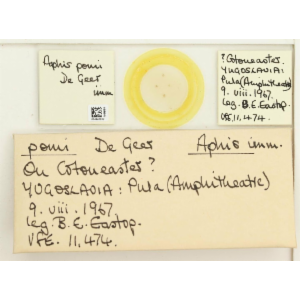 Aphis pomi
De Geer
imm.
? Cotoneaster.
YUGOSLAVIA:
Pula (Amphitheatre)
9. viii. 1967.
leg. B. E. Eastop.
VFE. 11,474.
pomi De Geer Aphis imm.
On Cotoneaster?
YUGOSLAVIA: Pula (Amphitheatre)
9. viii. 1967
leg. B. E. Eastop.
VFE. 11,474.